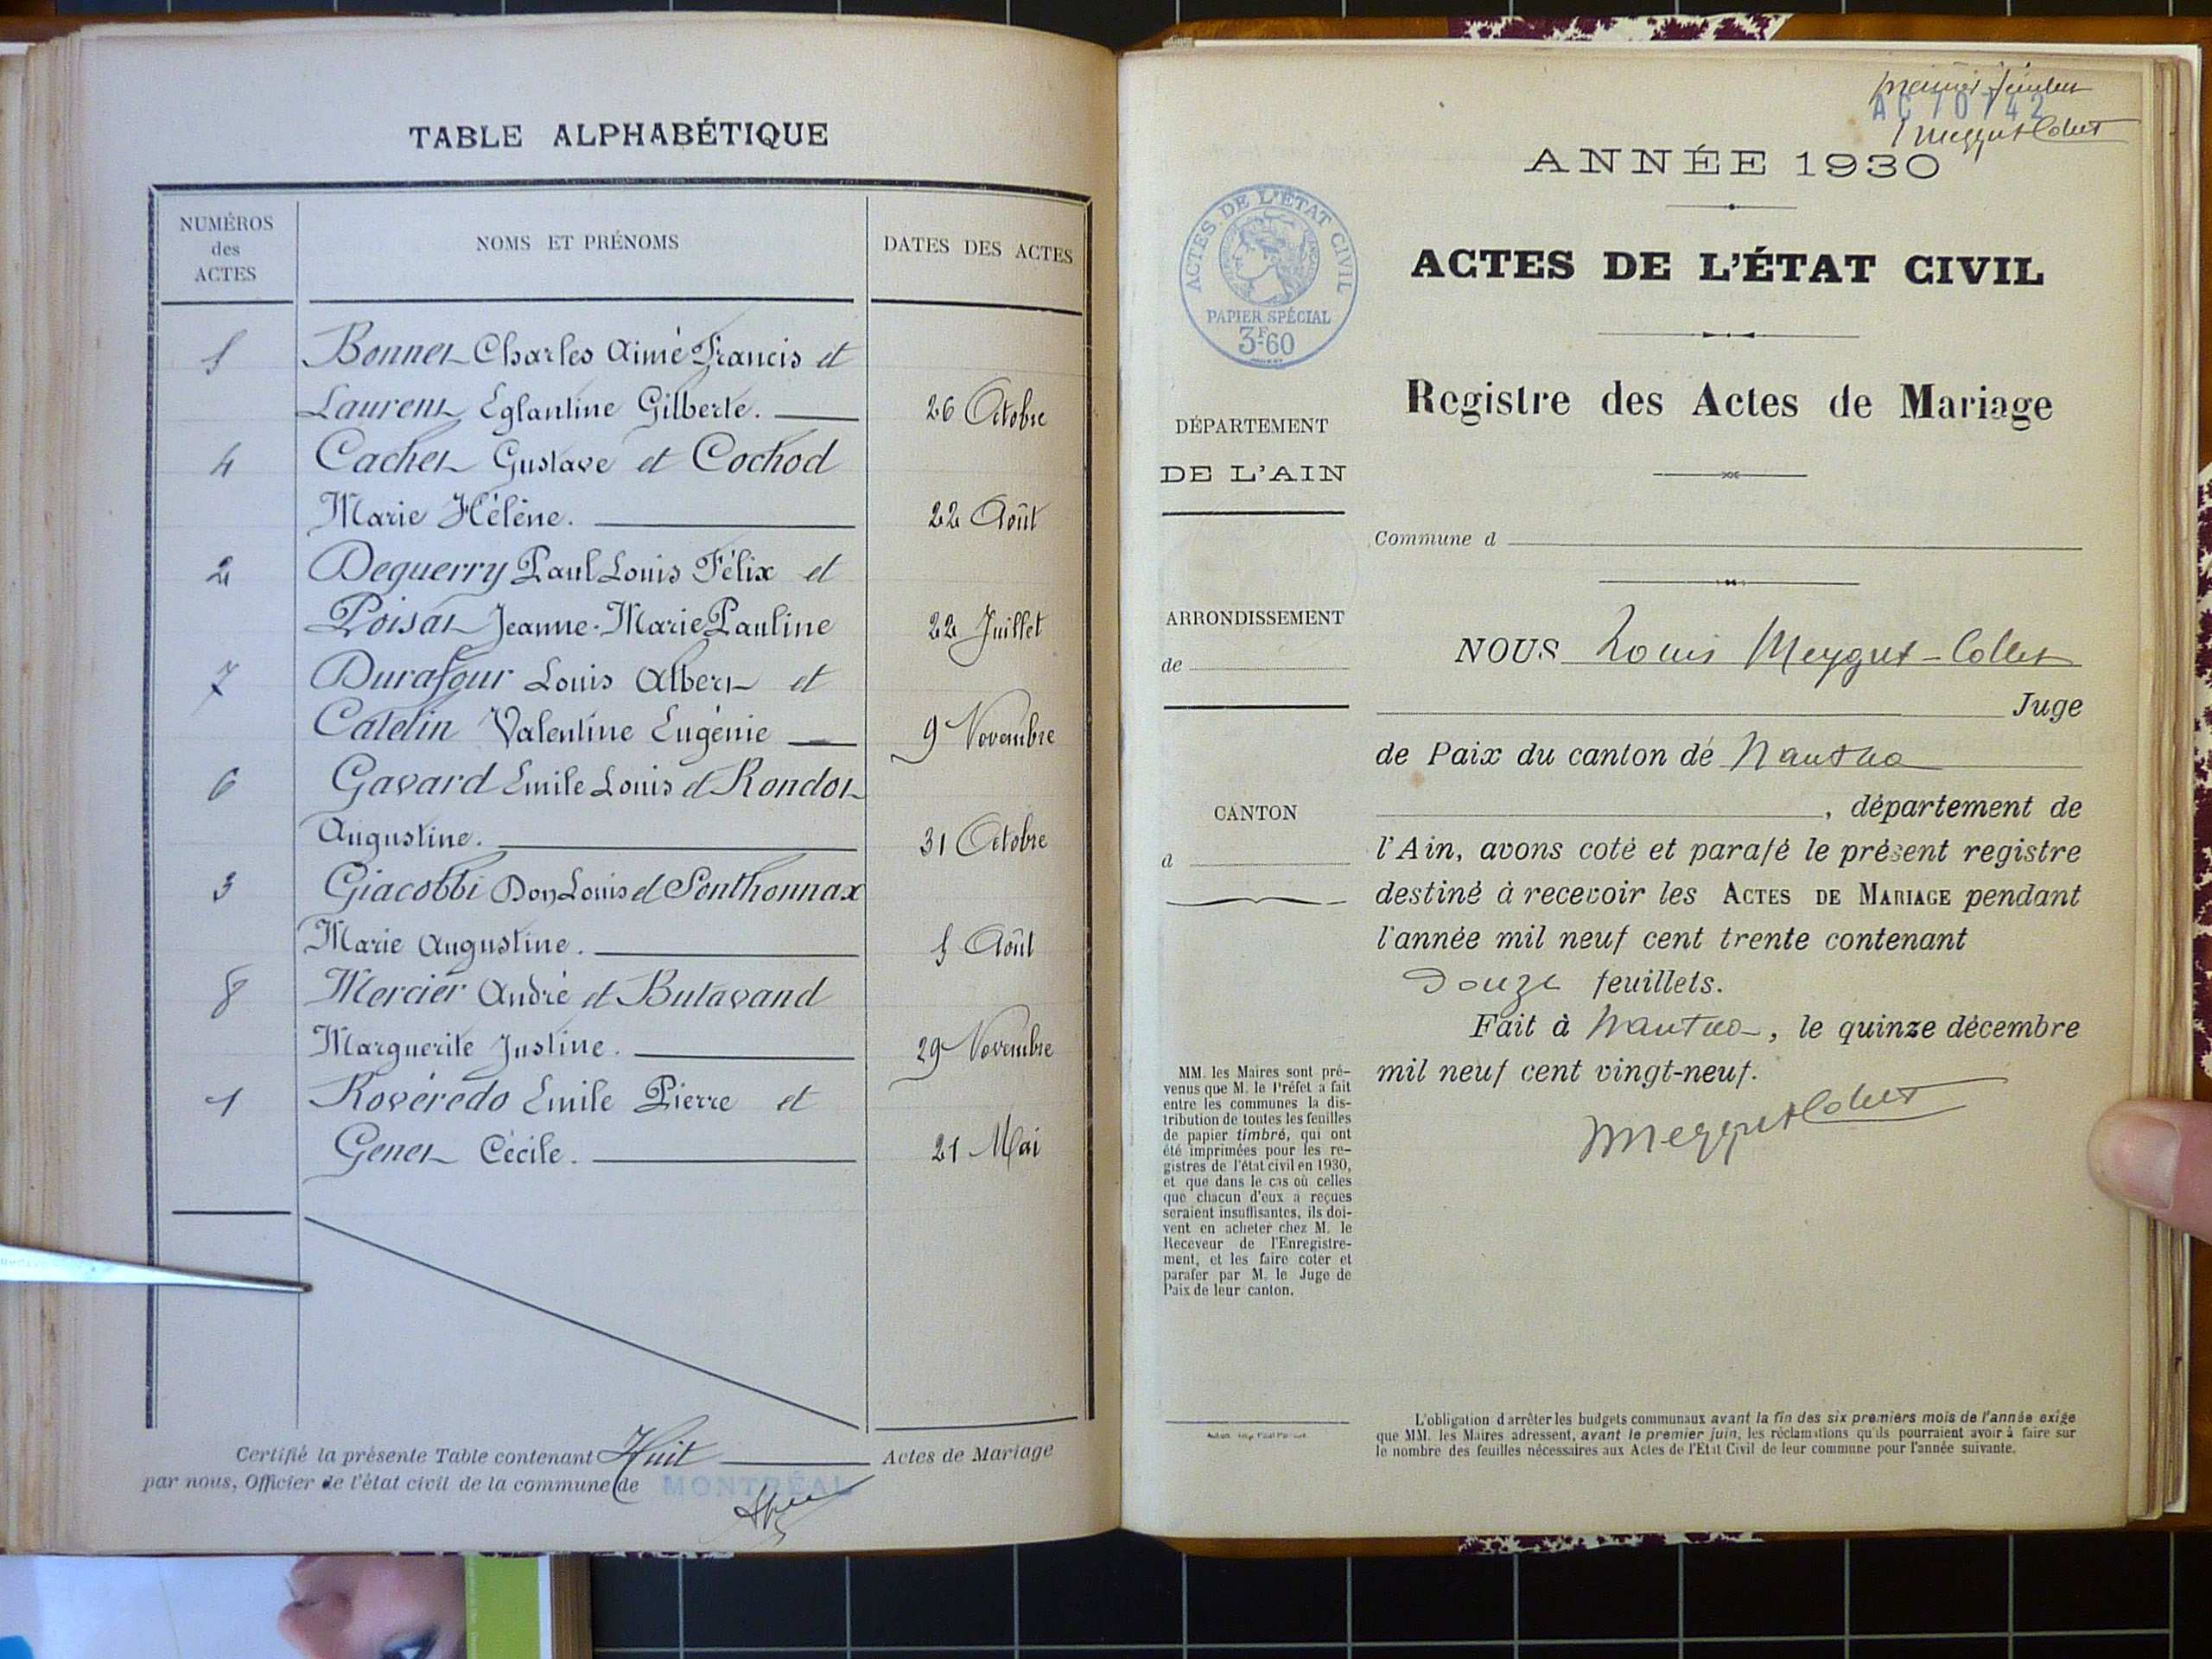 TABLE ALPHABÉTIQUE
NUMÉROS
des
ACTES
NOMS ET PRÉNOMS
DATES DES ACTES
5 Bonnet Charles Aimé Francis et
Laurent Eglantine Gilberte. 26 Octobre
4 Cachet Gustave et Cochod
Marie Hélène. 22 Août
2 Deguerry Paul Louis Félix et
Poisat Jeanne-Marie Pauline 22 Juillet
7 Durafour Louis Albert et
Catelin Valentine Eugénie 9 Novembre
6 Gavard Emile Louis et Rondot
Augustine. 31 Octobre
3 Giacobbi Don Louis et Ponthonnax
Marie Augustine. 5 Août
8 Mercier André et Butavand
Marguerite Justine. 29 Novembre
1 Rovérédo Emile Pierre et
Genet Cécile. 21 Mai
Certifié la présente Table contenant Huit Actes de Mariage
par nous, Officier de l'état civil de la commune de MONTRÉAL
premier feuillet
AC 70742
Meygret-Collet
ANNÉE 1930
ACTES DE L'ÉTAT CIVIL
PAPIER SPÉCIAL
3F60
ACTES DE L'ÉTAT CIVIL
Registre des Actes de Mariage
DÉPARTEMENT
DE L'AIN
Commune d
ARRONDISSEMENT
de
CANTON
d
NOUS Louis Meygret-Collet
Juge
de Paix du canton de Nantua
, département de
l'Ain, avons coté et parafé le présent registre
destiné à recevoir les ACTES DE MARIAGE pendant
l'année mil neuf cent trente contenant
Douze feuillets.
Fait à Nantua, le quinze décembre
mil neuf cent vingt-neuf.
Meygret Collet
MM. les Maires sont pré-
venus que M. le Préfet a fait
entre les communes la dis-
tribution de toutes les feuilles
de papier timbré, qui ont
été imprimées pour les re-
gistres de l'état civil en 1930,
et que dans le cas où celles
que chacun d'eux a reçues
seraient insuffisantes, ils doi-
vent en acheter chez M. le
Receveur de l'Enregistre-
ment, et les faire coter et
parafer par M. le Juge de
Paix de leur canton.
L'obligation d'arrêter les budgets communaux avant la fin des six premiers mois de l'année exige
que MM. les Maires adressent, avant le premier juin, les réclamations qu'ils pourraient avoir à faire sur
le nombre des feuilles nécessaires aux Actes de l'Etat Civil de leur commune pour l'année suivante.